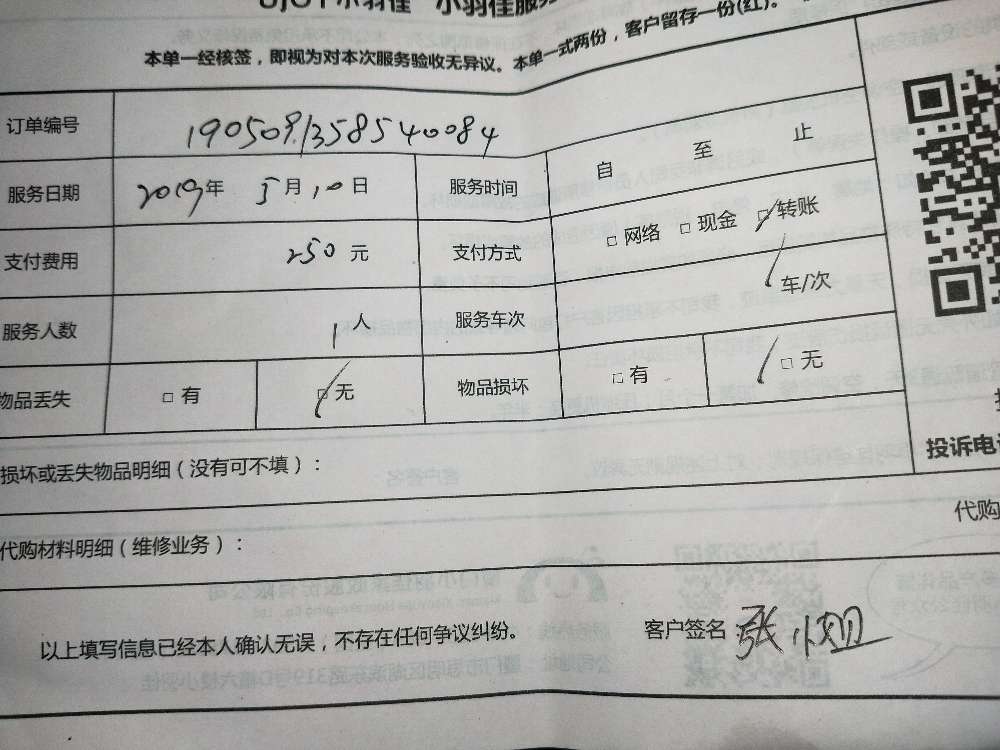 小羽佳服务
本单一经核签，即视为对本次服务验收无异议。本单一式两份，客户留存一份(红)。
订单编号 190509.1358540084
服务日期 2019年 5月10日 服务时间 自 至 止
支付费用 250元 支付方式 □网络 □现金 □转账
服务人数 1人 服务车次 / 车/次
物品丢失 □有 □无 物品损坏 □有 □无
损坏或丢失物品明细（没有可不填）：
投诉电话
代购
代购材料明细（维修业务）：
以上填写信息已经本人确认无误，不存在任何争议纠纷。 客户签名 张